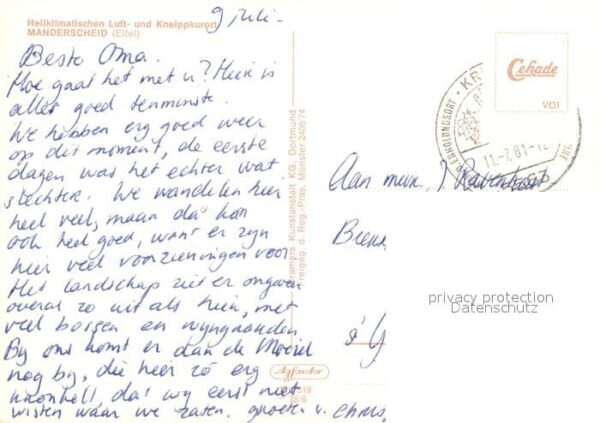 Heilklimatischen Luft- und Kneippkurort
MANDERSCHEID (Eifel)
9 juli-
Beste Oma.
Hoe gaat het met u? Hier is
alles goed tenminste.
We hebben erg goed weer
op dit moment, de eerste
dagen was het echter wat
slechter. We wandelen hier
heel veel, maar da' kan
ook heel goed, want er zyn
hier veel voorzieningen voor
Het landschap ziet er ongeveer
overal zo uit als hier, met
veel bergen en wyngaarden
By ons komt er dan de Moezel
nog by, die heer zo erg
kronkelt, da' wy eerst niet
wisten waar we zaten. groeten v.
Chris
Kramers Kunstanstalt KG, Dortmund
Freigeg. d. Reg.-Präs. Münster 2406/74
Agfacolor
519
75/6
Cekade
VOI
ERHOLUNGSORT · KR
11.-7.81-1
Aan mevr. J
s'
privacy protection
Datenschutz